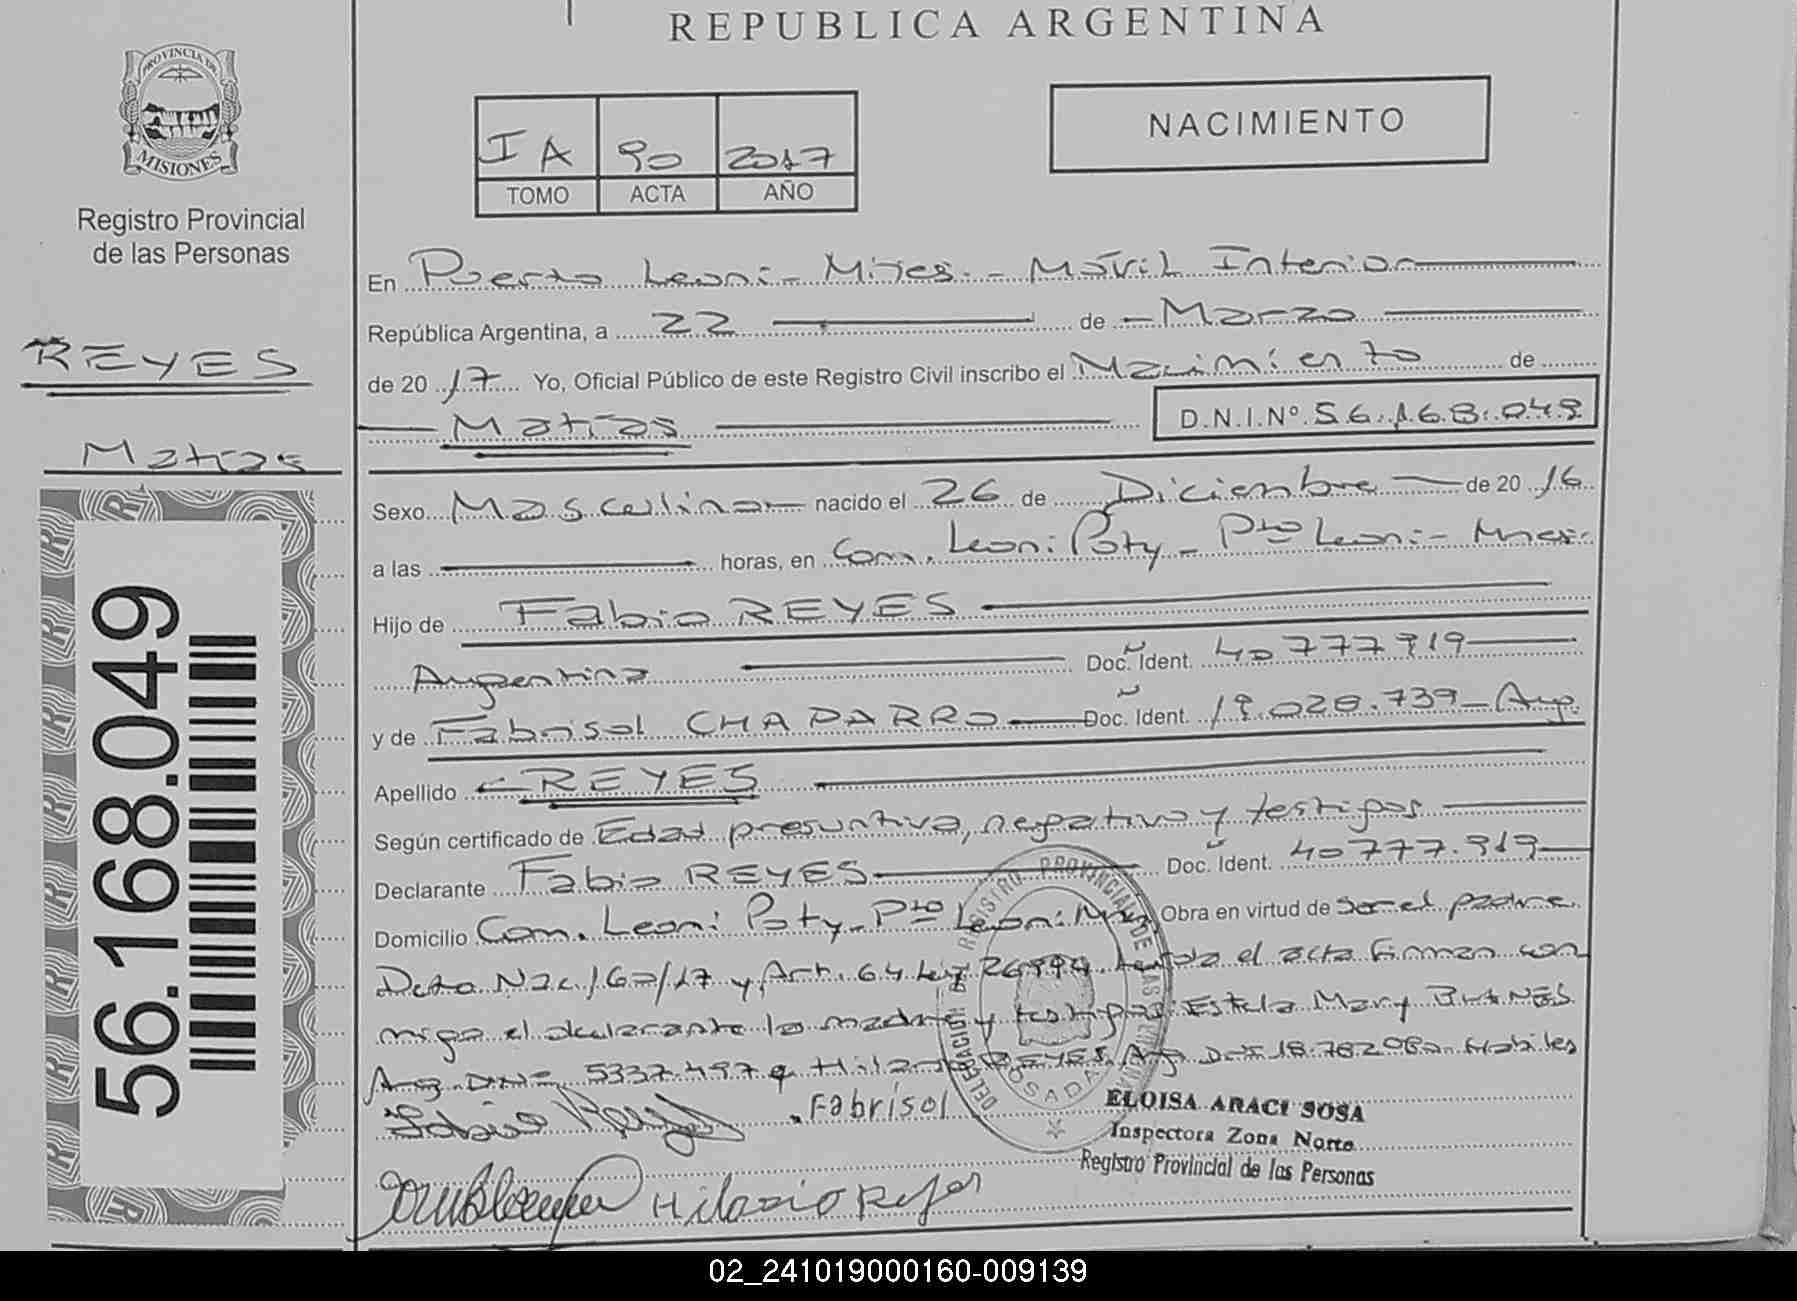 REPUBLICA ARGENTINA
PROVINCIA DE
MISIONES
Registro Provincial
de las Personas
NACIMIENTO
I A 90 2017
TOMO ACTA AÑO
REYES
Matías
56.168.049
En Puerto Leoni - Mnes. - Móvil Interior
República Argentina, a 22 de Marzo
de 20 17 Yo, Oficial Público de este Registro Civil inscribo el Nacimiento de
Matías D.N.I.Nº 56.168.049
Sexo Masculino nacido el 26 de Diciembre de 20 16
a las horas, en Com. Leoni Poty - Pto Leoni - Mnes.
Hijo de Fabio REYES
Argentina Doc. Ident. 40777919
y de Fabrisol CHAPARRO Doc. Ident. 19.028.739 - Arg.
Apellido REYES
Según certificado de Edad presuntiva, negativo y testigos
Declarante Fabio REYES Doc. Ident. 40777.919
Domicilio Com. Leoni Poty - Pto Leoni Mnes Obra en virtud de ser el padre
Dcto Nac 160/17 y Art. 64 Ley 26994 Leída el acta firman con
migo el declarante la madre y testigos Estela Mary
Arg. DNI 5337.497 Hilario REYES Arg. DNI 18.782 Habiles
Fabrisol
REGISTRO PROVINCIAL DE LAS PERSONAS
DELEGACION
POSADAS
ELOISA ARACI SOSA
Inspectora Zona Norte
Registro Provincial de las Personas
Hilario Reyes
02_241019000160-009139